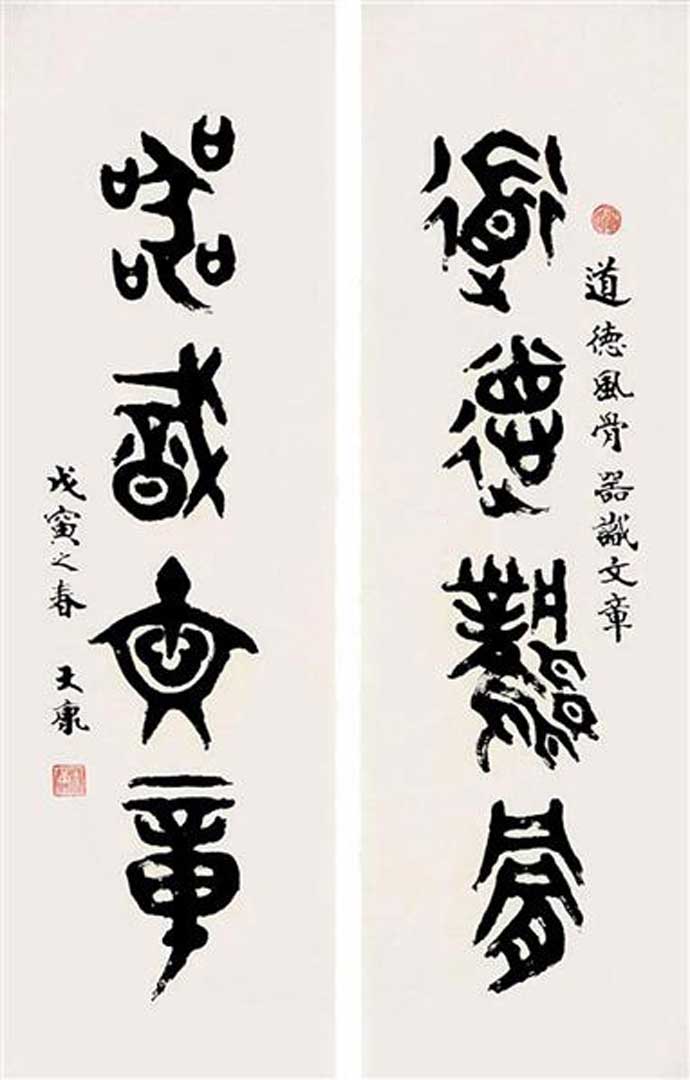 道德風骨器識文章
道德風骨
器識文章
戊寅之春 天康